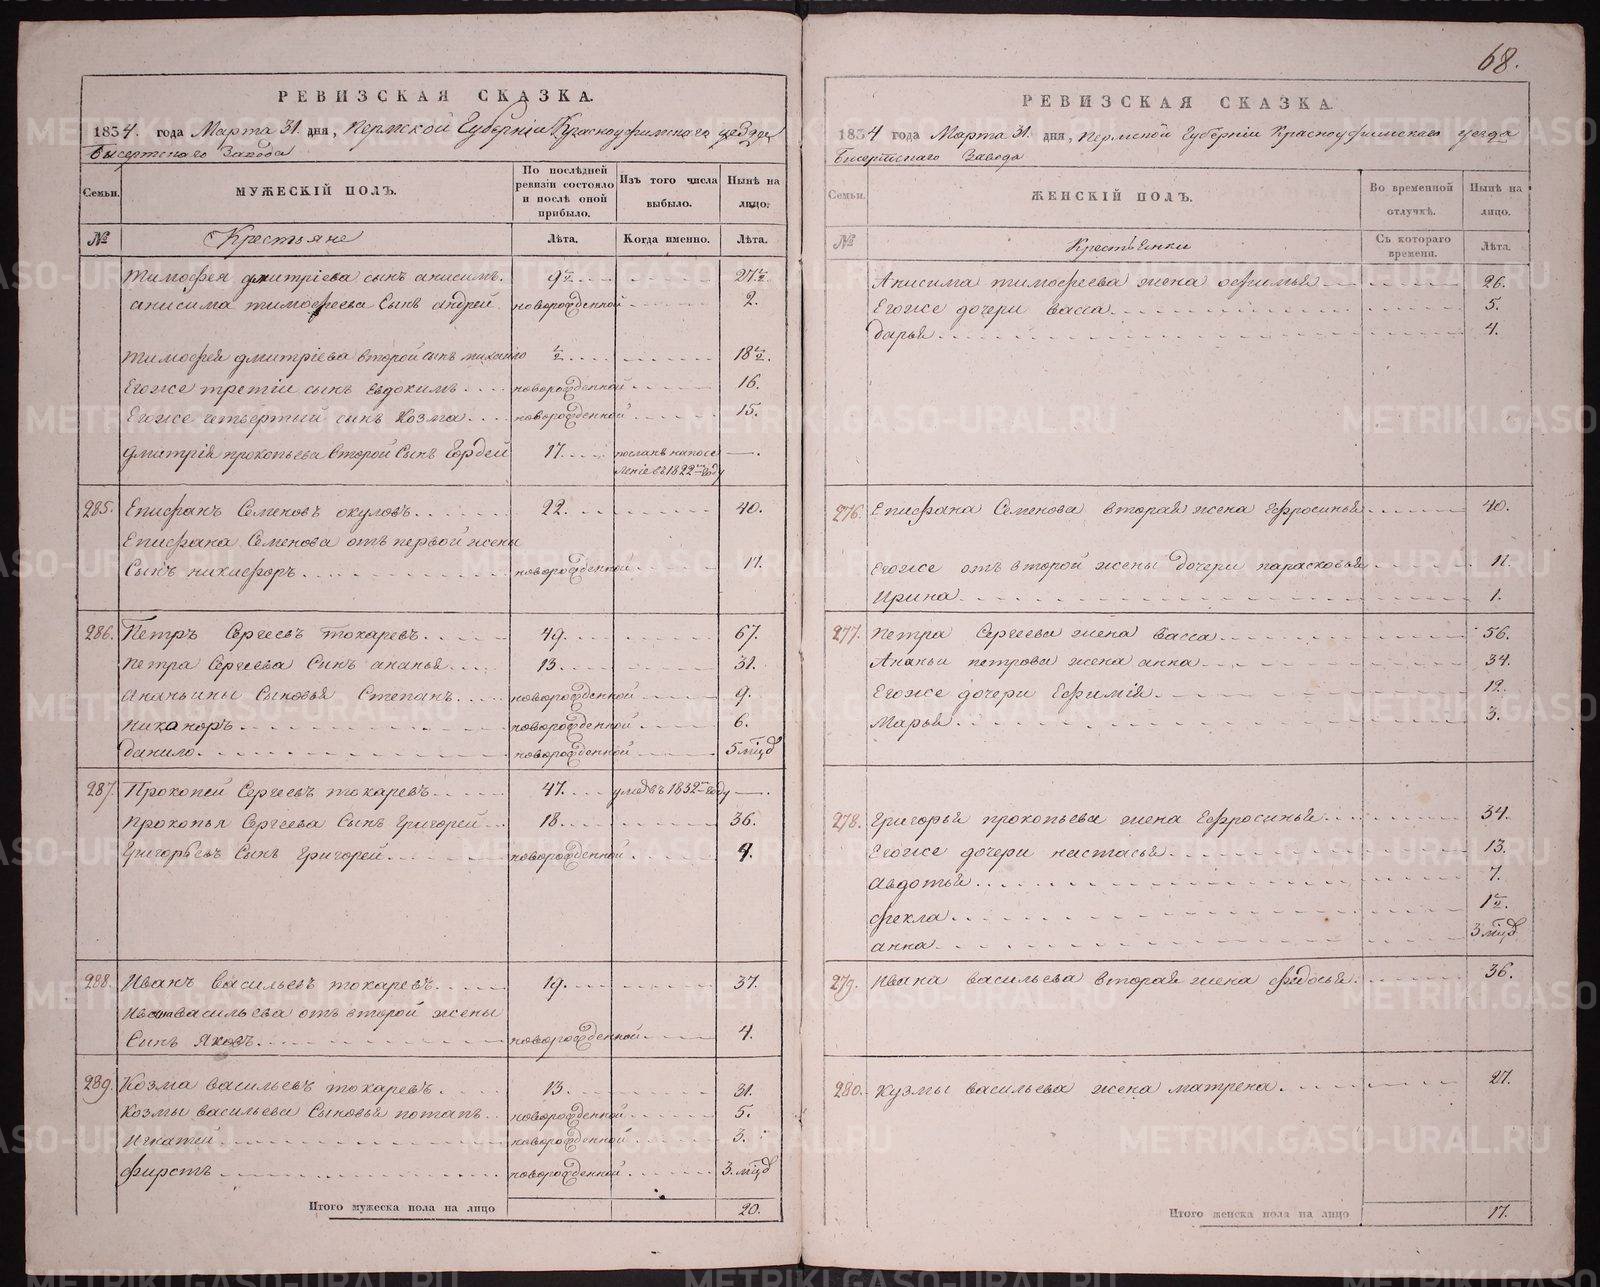 68.
РЕВИЗСКАЯ СКАЗКА.
1834. года Марта 31. дня, Пермской Губерніи Красноуфимскаго уезда
Бисертскаго Завода
Семьи. МУЖЕСКІЙ ПОЛЪ. По послѣдней ревизіи состояло и послѣ оной прибыло. Изъ того числа выбыло. Нынѣ на лицо.
№ Крестьяне Лѣта. Когда именно. Лѣта.
Тимофея дмитріева сынъ анисимъ. 9 1/2 27 1/2
анисима тимофеева Сынъ андрей новорожденной 2.
тимофея дмитріева второй сынъ михаило 1/2 18 1/2
Егоже третіи сынъ Евдокимъ новорожденной 16.
Егоже четвертый сынъ козма новорожденной 15.
дмитрія прокопьева второй Сынъ Гордей 17. посланъ на посе
леніе въ 1822 году —.
285. Епифанъ Семеновъ окуловъ 22. 40.
Епифана Семенова отъ первой жены
Сынъ никифоръ новорожденной 17.
286. Петръ Сергеевъ токаревъ 49. 67.
Петра Сергеева Сынъ ананья 13. 31.
Ананьины Сыновья Степанъ новорожденной 9.
Никаноръ новорожденной 6.
данило новорожденной 5 мѣцъ
287. Прокопей Сергеевъ токаревъ 47. умре въ 1832 году —.
Прокопья Сергеева Сынъ Григорей 18. 36.
Григорьевъ Сынъ Григорей новорожденной 4.
288. Иванъ васильевъ токаревъ 19. 37.
Ивана васильева отъ второй жены
Сынъ Яковъ новорожденной 4.
289. Козма васильевъ токаревъ 13. 31.
Козмы васильева Сыновья потапъ новорожденной 5.
Игнатей новорожденной 3.
фирстъ новорожденной 3. мѣцъ
Итого мужеска пола на лицо 20.
РЕВИЗСКАЯ СКАЗКА.
1834 года Марта 31. дня, Пермской Губерніи Красноуфимскаго уезда
Бисертскаго Завода
Семьи. ЖЕНСКІЙ ПОЛЪ. Во временной отлучкѣ. Нынѣ на лицо.
№ Крестьенки Съ котораго времени. Лѣта.
Анисима тимофеева жена офимья 26.
Егоже дочери васса 5.
дарья 4.
276. Епифана Семенова вторая жена Ефросинья 40.
Егоже отъ второй жены дочери парасковья 11.
Ирина 1.
277. Петра Сергеева жена васса 56.
Ананьи петрова жена анна 34.
Егоже дочери Ефимія 12.
Марья 3.
278. Григорья прокопьева жена Ефросинья 34.
Егоже дочери настасья 13.
авдотья 7.
фекла 1 1/2.
анна 3 мѣцъ
279. Ивана васильева вторая жена федосья 36.
280. Кузмы васильева жена матрена 27.
Итого женска пола на лицо 17.
METRIKI.GASO-URAL.RU